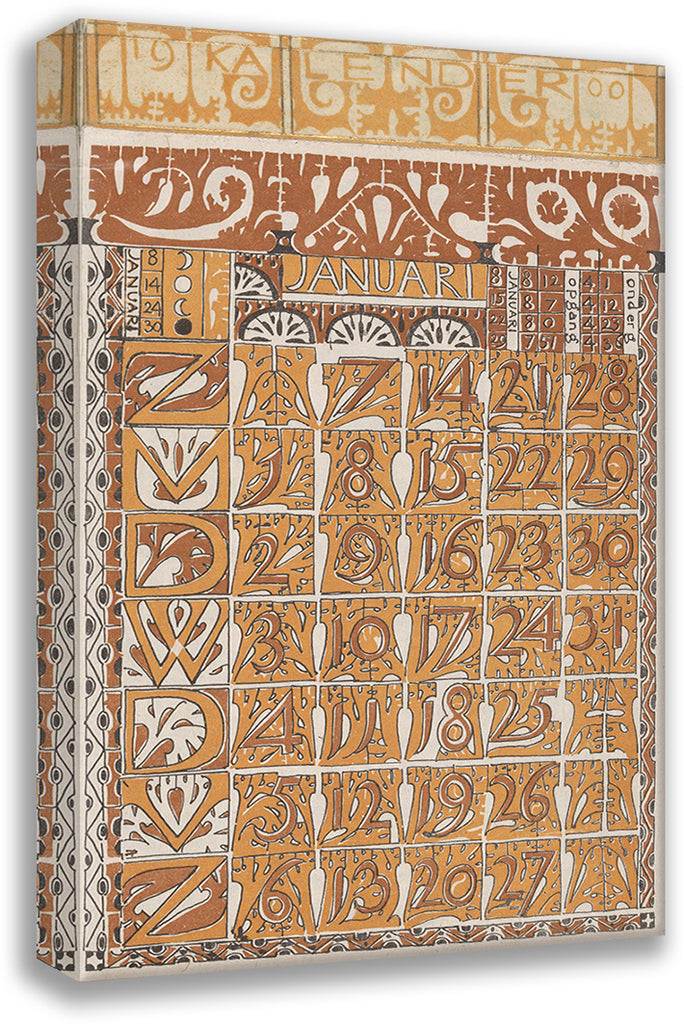 19 KALENDER 00
JANUARI
8 14 24 30
JANUARI
JANUARI
8 15 24 29
8 8 8 7
12 7 0 51
opgang
4 4 4 4
onderg
Z 7 14 21 28
M 1 8 15 22 29
D 2 9 16 23 30
W 3 10 17 24 31
D 4 11 18 25
V 5 12 19 26
Z 6 13 20 27